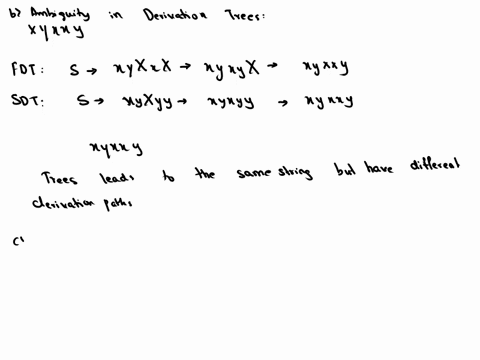 b) Ambiguity in Derivation Trees:
xyxxy
FDT: S → xyXxX → xyxyX → xyxxy
SDT: S → xyXyy → xyxyy → xyxxy
xyxxy
Trees leads to the same string but have different
derivation paths
c)